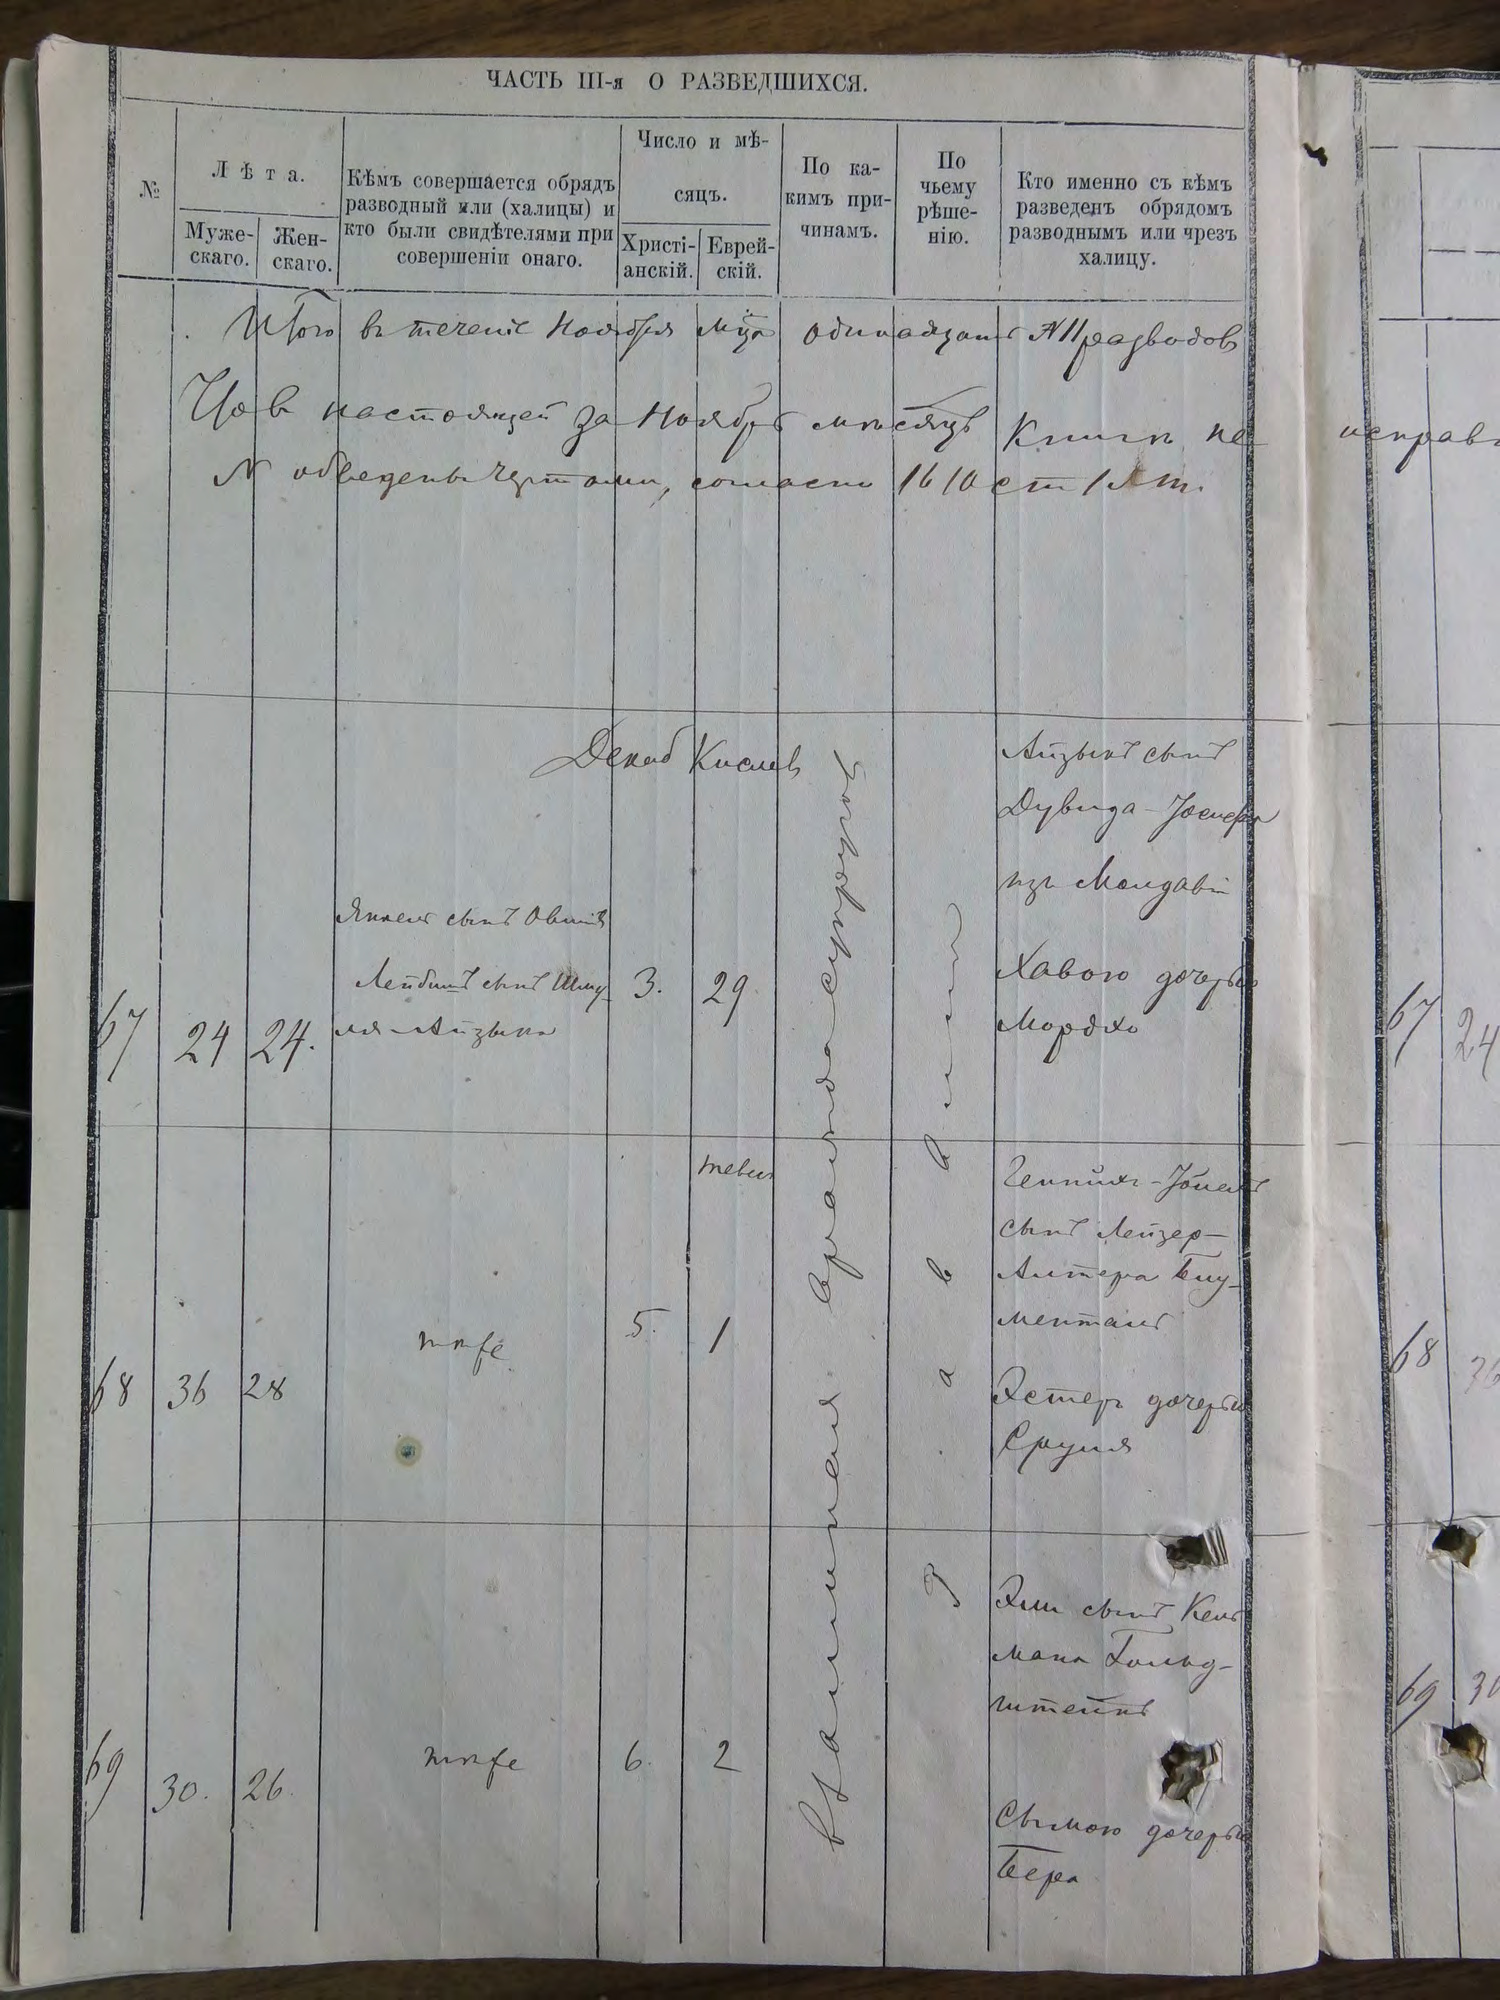 ЧАСТЬ III-я О РАЗВЕДШИХСЯ.
№
Лѣта.
Муже-
скаго.
Жен-
скаго.
Кѣмъ совершается обрядъ
разводный или (халицы) и
кто были свидѣтелями при
совершеніи онаго.
Число и мѣ-
сяцъ.
Христі-
анскій.
Еврей-
скій.
По ка-
кимъ при-
чинамъ.
По
чьему
рѣше-
нію.
Кто именно съ кѣмъ
разведенъ обрядомъ
разводнымъ или чрезъ
халицу.
Итого въ теченіе Ноября мца одинадцать 11 разводовъ
Что въ настоящей за Ноябрь мѣсяцъ Книгѣ не исправ
обведены чертами, согласно 1610 ст
Декаб Кислев
67 24 24.
Янкель сынъ Овшія
Лейбишъ сынъ Шму-
ля-Айзыка
3. 29
Взаимная вражда супруговъ
Раввина
Айзыкъ сынъ
Дувида-Иосифа
изъ Молдавіи
Хавою дочерью
Мордхо
67 24
тевет
68 36 28
тѣже
5. 1
сынъ Лейзер-
Алтера Блу-
менталь
Эстеръ дочерью
Сруля
68 36
69 30. 26.
тѣже
6. 2
Эли сынъ Кель
мана Гольд-
штейнъ
Симою дочерью
Бера
69 30